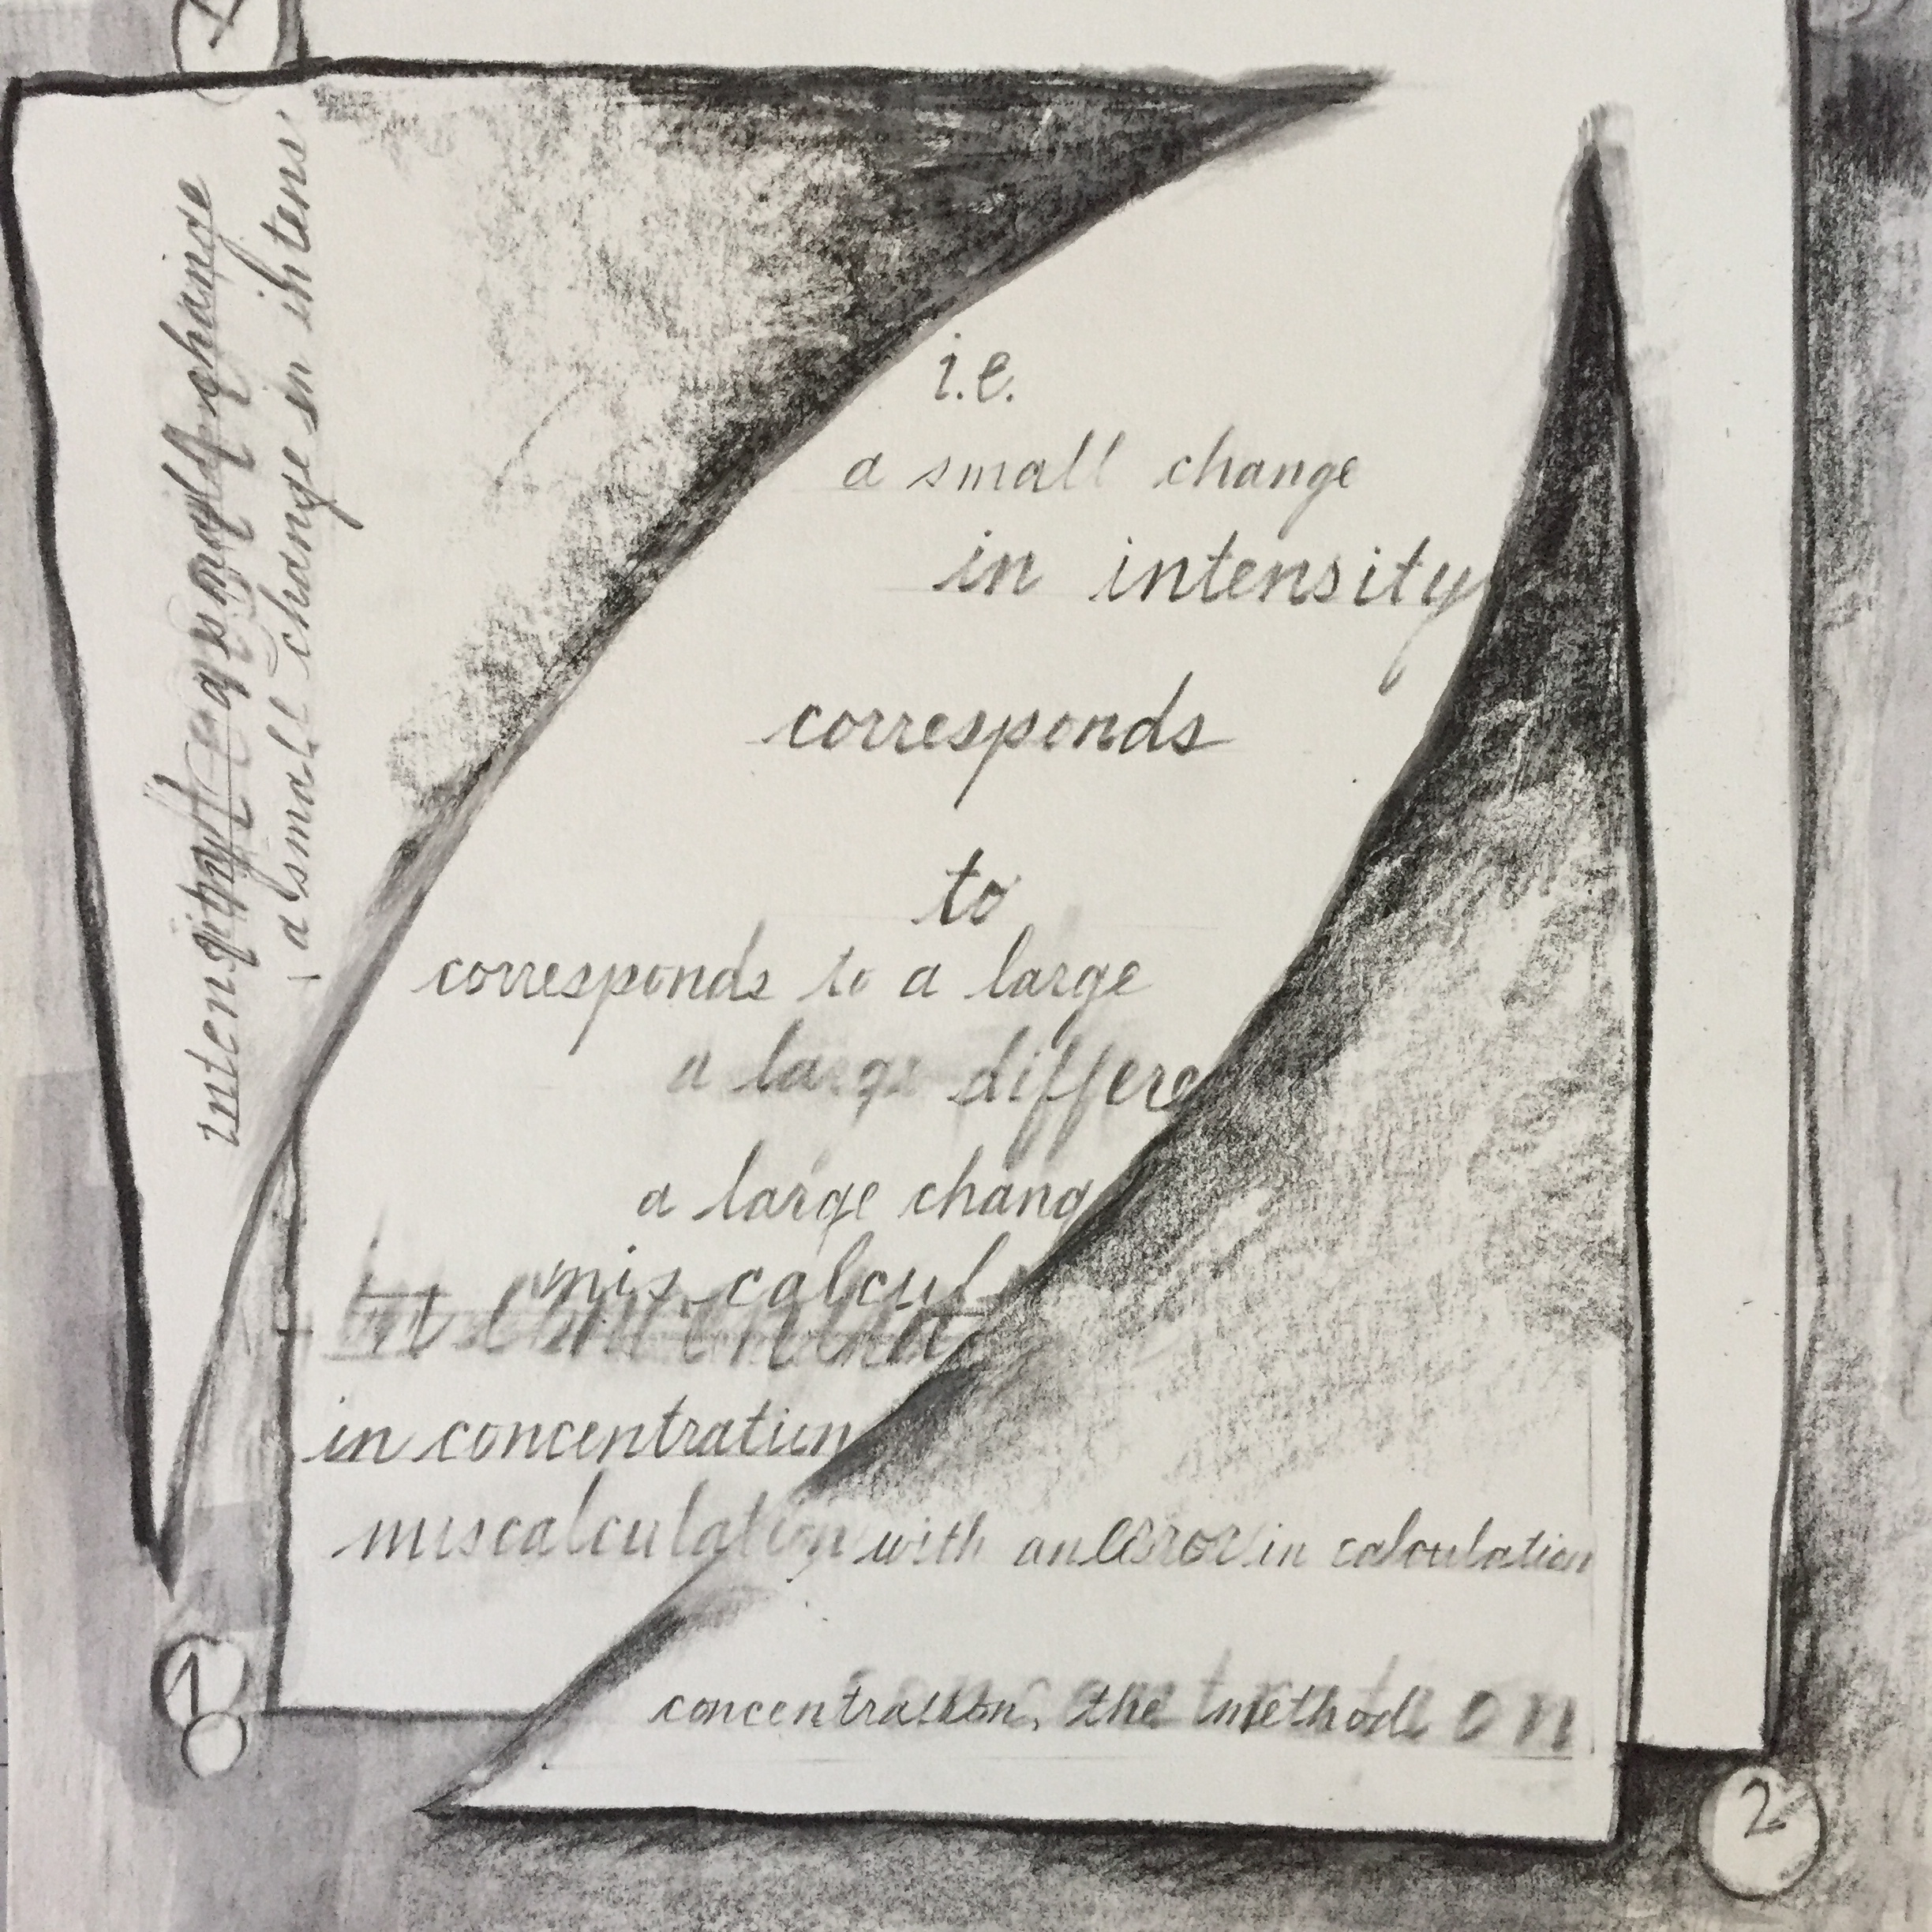 a small change in intens
i.e.
a small change
in intensity
corresponds
to
corresponds to a large
a large differe
a large chang
mis calcul
in concentration
miscalculation with an error in calculation
concentration, the method on
1
2